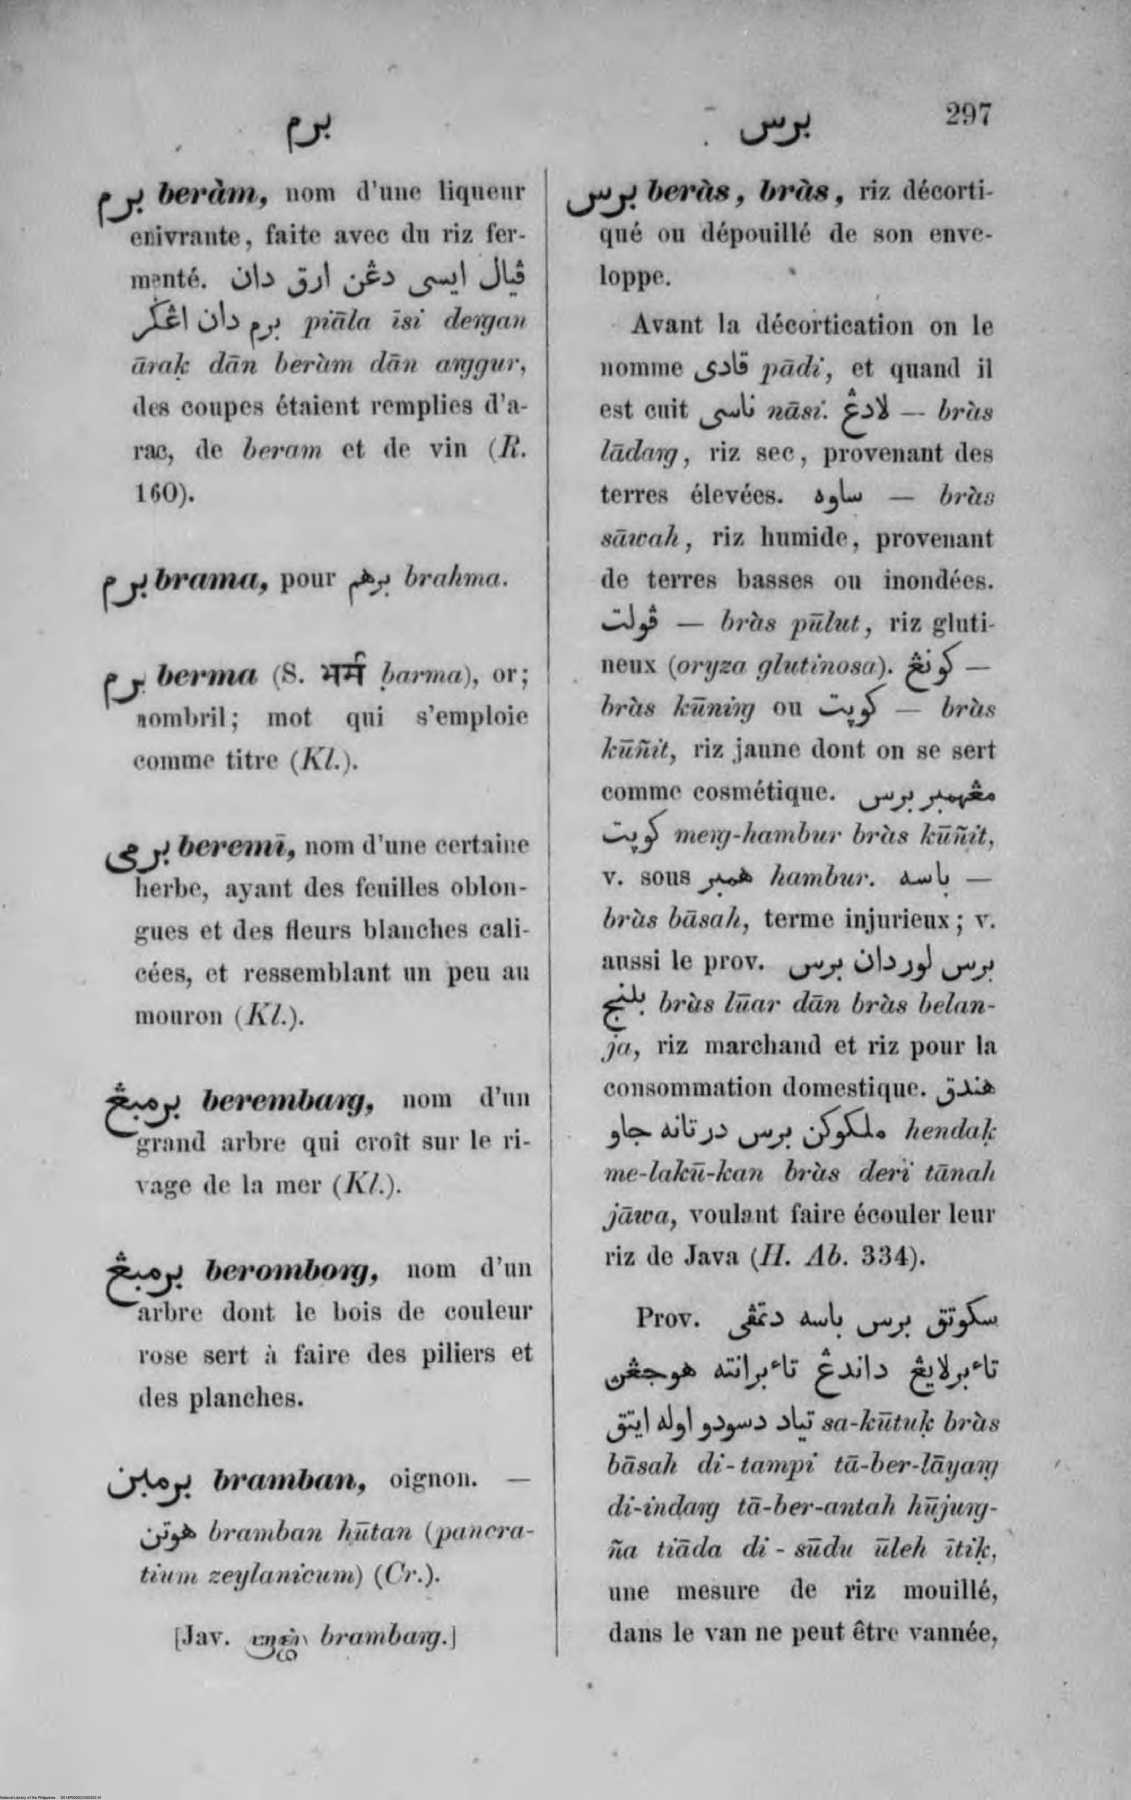 برم
برس
297
برم beràm, nom d'une liqueur
enivrante, faite avec du riz fer-
menté. ڤيال ايسى دڠن ارق دان
برم دان اڠڬر pīāla īsi deṛgan
āraḳ dān beràm dān aṛggur,
des coupes étaient remplies d'a-
rac, de beram et de vin (R.
160).
برم brama, pour برهم brahma.
برم berma (S. भर्म barma), or;
nombril; mot qui s'emploie
comme titre (Kl.).
برمى beremī, nom d'une certaine
herbe, ayant des feuilles oblon-
gues et des fleurs blanches cali-
cées, et ressemblant un peu au
mouron (Kl.).
برمبڠ berembaṛg, nom d'un
grand arbre qui croît sur le ri-
vage de la mer (Kl.).
برمبڠ beromboṛg, nom d'un
arbre dont le bois de couleur
rose sert à faire des piliers et
des planches.
برمبن bramban, oignon. —
هوتن bramban hūtan (pancra-
tium zeylanicum) (Cr.).
[Jav. brambaṛg.]
برس beràs, bràs, riz décorti-
qué ou dépouillé de son enve-
loppe.
Avant la décortication on le
nomme ڤادى pādi, et quand il
est cuit ناسى nāsi. لادڠ — bràs
lādaṛg, riz sec, provenant des
terres élevées. ساوه — bràs
sāwah, riz humide, provenant
de terres basses ou inondées.
ڤولت — bràs pūlut, riz gluti-
neux (oryza glutinosa). كونڠ —
bràs kūniṛg ou كوپت — bràs
kūñit, riz jaune dont on se sert
comme cosmétique. مڠهمبر برس
كوپت meṛg-hambur bràs kūñit,
v. sous همبر hambur. باسه —
bràs bāsah, terme injurieux; v.
aussi le prov. برس لور دان برس
بلنج bràs lūar dān bràs belan-
ja, riz marchand et riz pour la
consommation domestique. هندق
ملكوكن برس در تانه جاو hendaḳ
me-lakū-kan bràs deri tānah
jāwa, voulant faire écouler leur
riz de Java (H. Ab. 334).
Prov. سكوتق برس باسه دتمڤى
تاءبرلايڠ داندڠ تاءبرانته هوجڠن
تياد دسودو اوله ايتق sa-kūtuḳ bràs
bāsah di-tampi tā-ber-lāyaṛg
di-indaṛg tā-ber-antah hūjuṛg-
ña tiāda di-sūdu ūleh ītiḳ,
une mesure de riz mouillé,
dans le van ne peut être vannée,